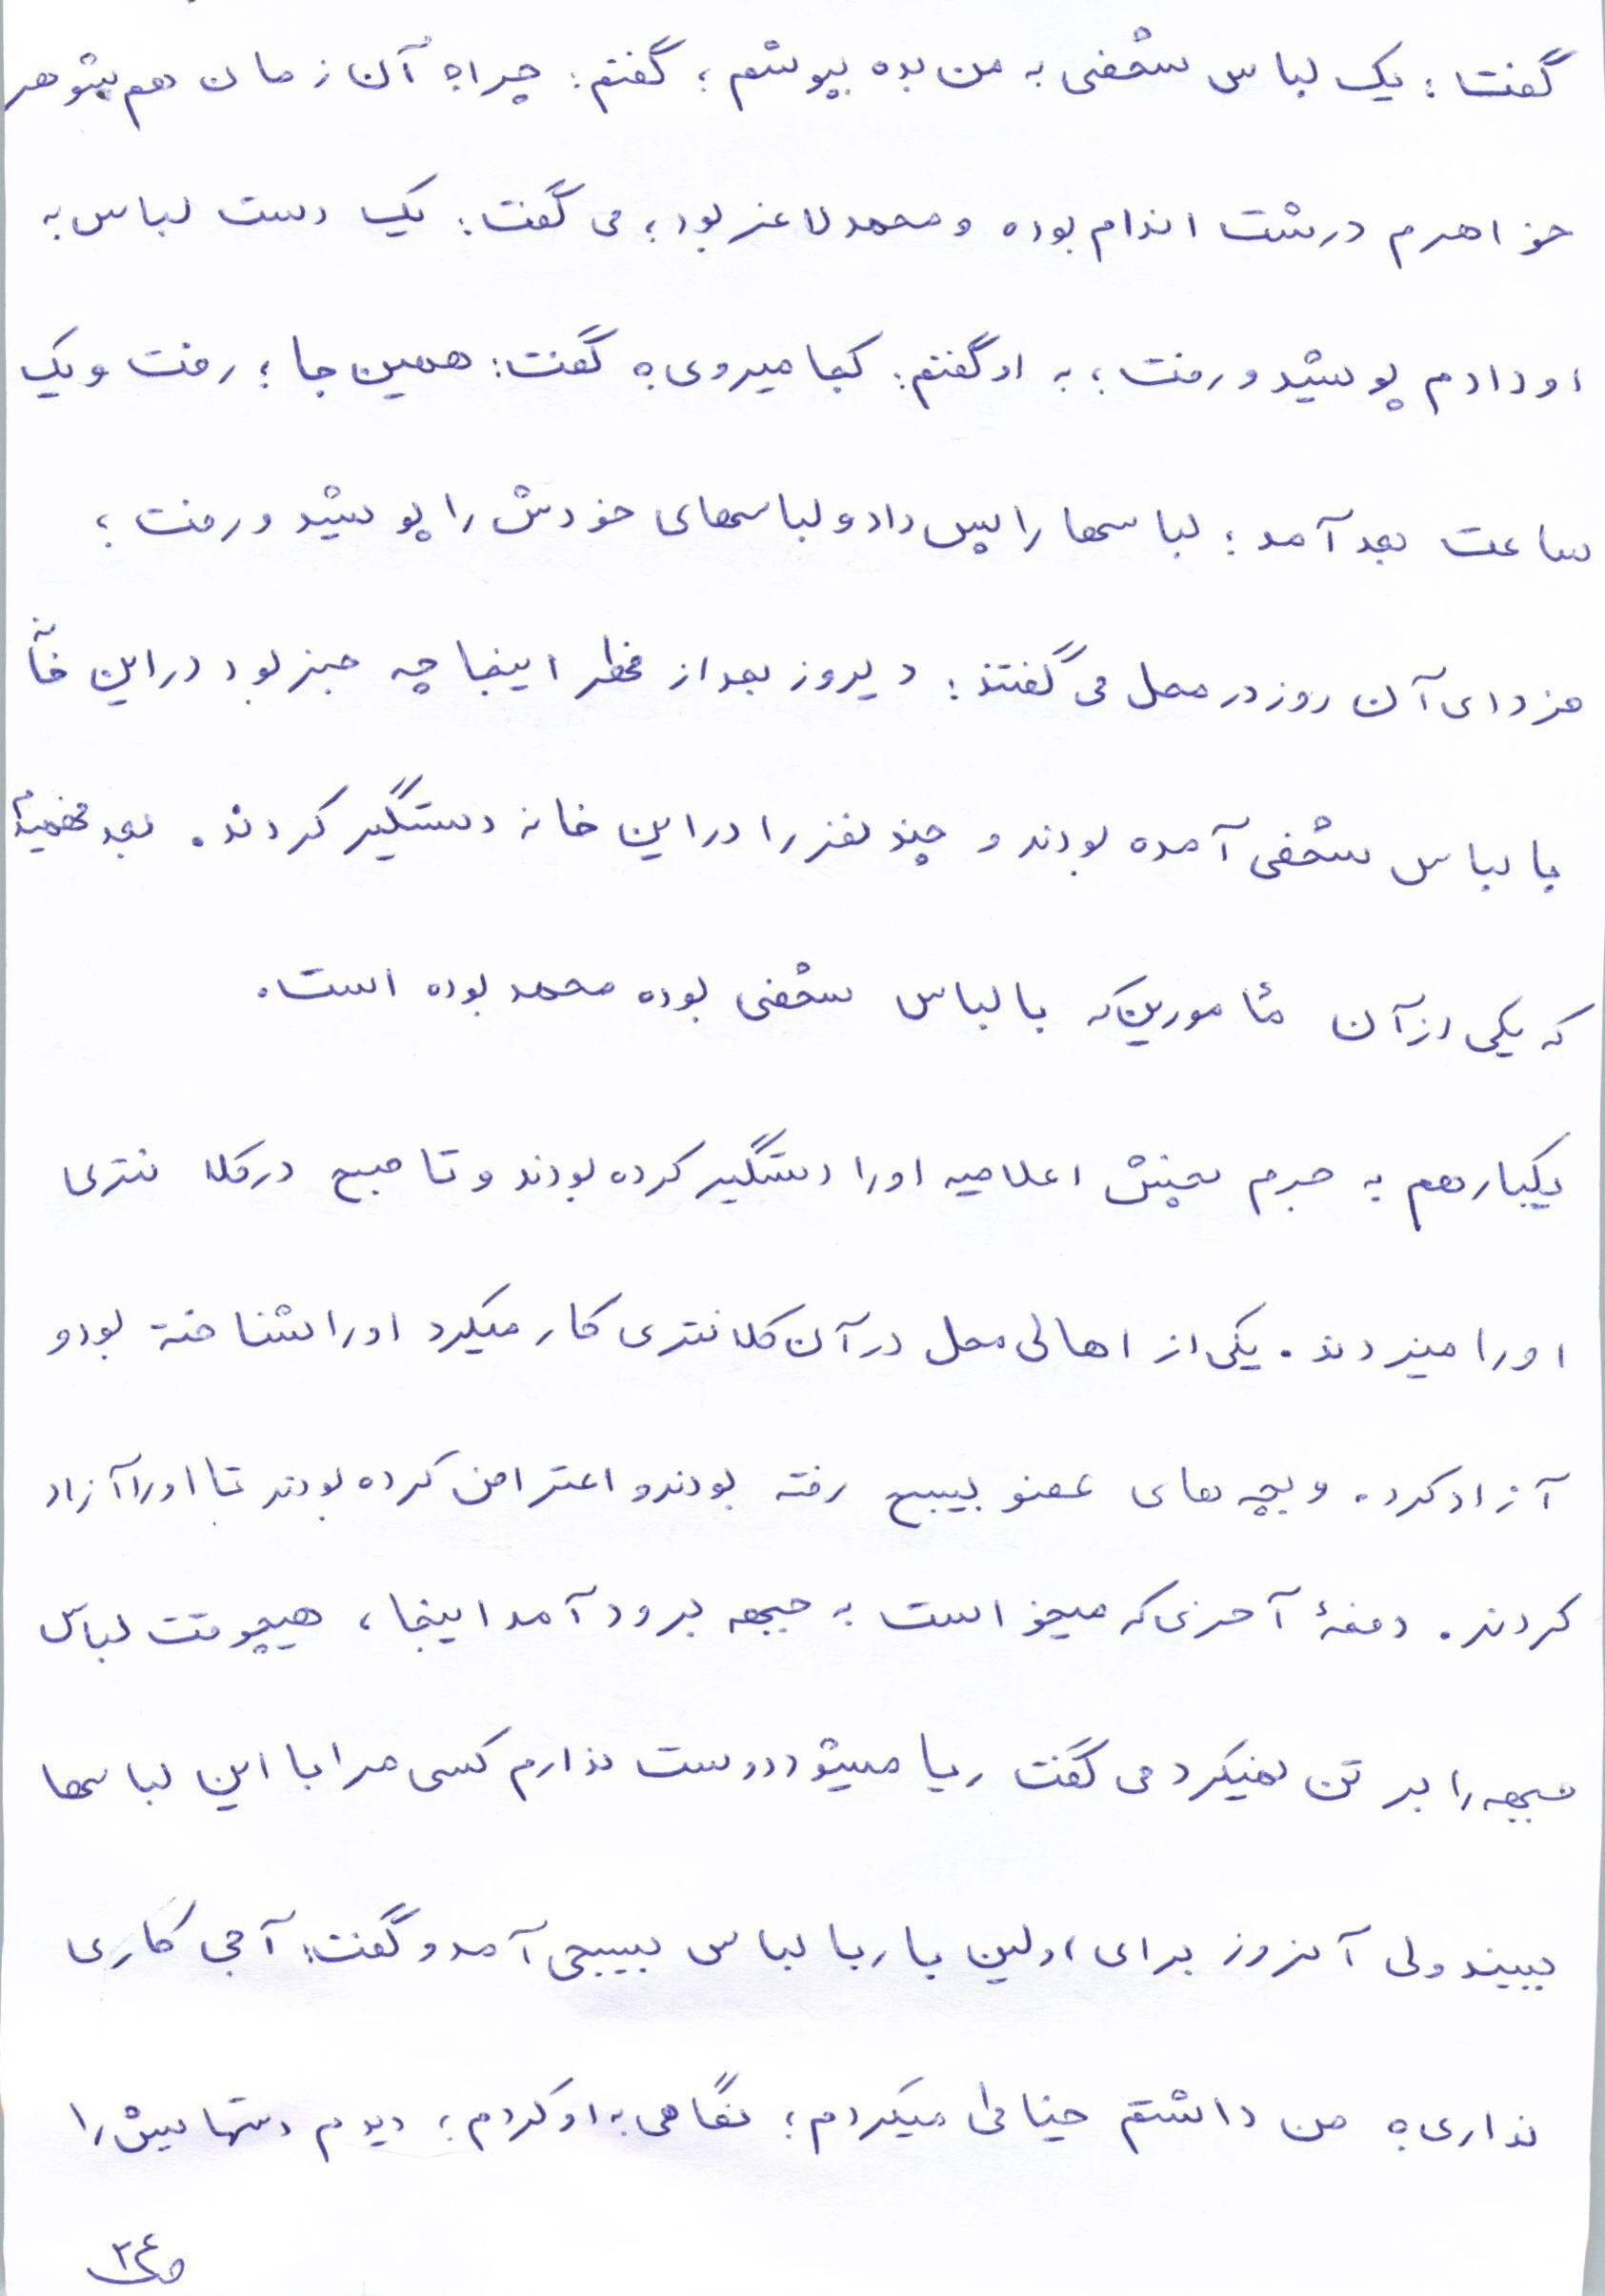 گفت؛ یک لباس شخصی به من بده بپوشم؛ گفتم: چرا؟ آن زمان هم شوهر
خواهرم درشت اندام بوده و محمد لاغر بود؛ می گفت: یک دست لباس به
او دادم پوشید و رفت؛ به او گفتم: کجا میروی؟ گفت: همین جا؛ رفت و یک
ساعت بعد آمد؛ لباسها را پس داد و لباسهای خودش را پوشید و رفت؛
فردای آن روز در محل می گفتند: دیروز بعد از ظهر اینجا چه خبر بود در این خانه
با لباس شخصی آمده بودند و چند نفر را در این خانه دستگیر کردند. بعد فهمیدیم
که یکی از آن مأمورین که با لباس شخصی بوده محمد بوده است.
یکبار هم به جرم پخش اعلامیه او را دستگیر کرده بودند و تا صبح در کلانتری
او را میزدند. یکی از اهالی محل در آن کلانتری کار میکرد او را شناخته بود و
آزاد کرد. و بچه های عضو بسیج رفته بودند و اعتراض کرده بودند تا او را آزاد
کردند. دفعهٔ آخری که میخواست به جبهه برود آمد اینجا، هیچوقت لباس
جبهه را بر تن نمیکرد می گفت ریا میشود دوست ندارم کسی مرا با این لباسها
ببیند ولی آنروز برای اولین بار با لباس بسیجی آمد و گفت: آجی کاری
نداری؟ من داشتم خیاطی میکردم؛ نگاهی به او کردم؛ دیدم دستهایش را
ص۲۴